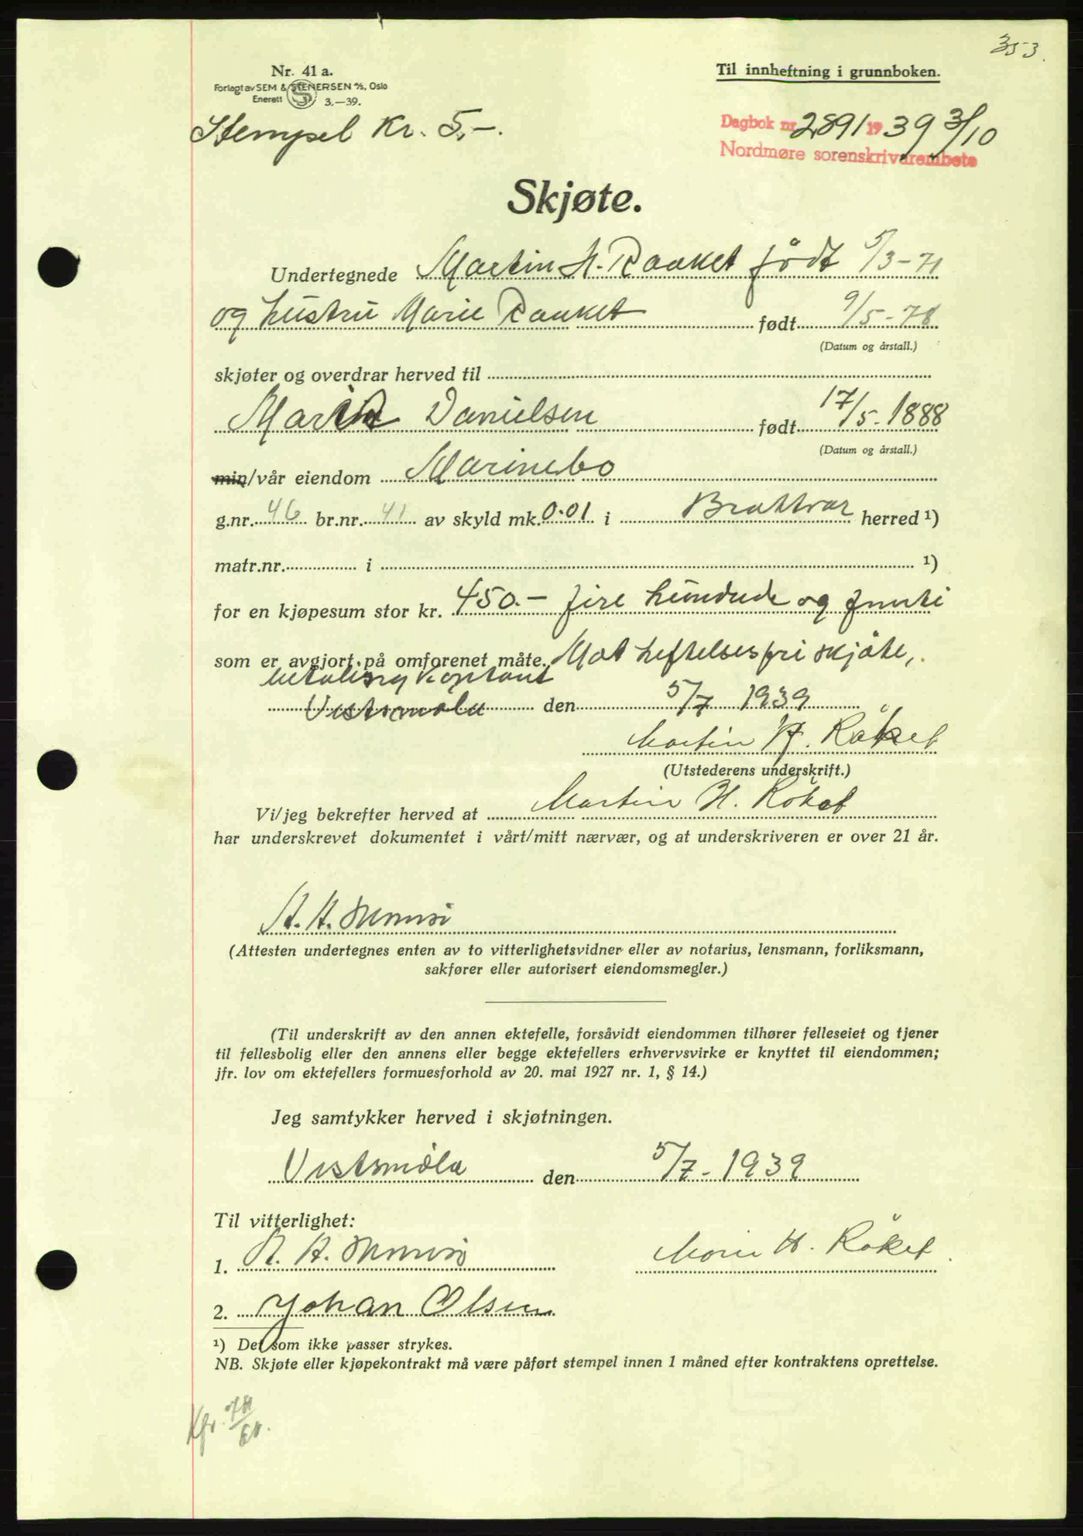 353.
Nr. 41 a.
Forlagt av SEM & STENERSEN A/S, Oslo
Enerett 3.—39.
Til innheftning i grunnboken.
Stempel Kr. 5,-.
Dagbok nr 2891 1939 3/10
Nordmøre sorenskriverembete
Skjøte.
Undertegnede Martin H. Raaket født 5/3-71
og hustru Marie Raaket født 9/5-78
(Datum og årstall.)
skjøter og overdrar herved til
Danielsen født 17/5-1888
(Datum og årstall.)
min/vår eiendom Marinebo
g.nr. 46 br.nr. 41 av skyld mk. 0.01 i Brattvær herred ¹)
matr.nr. i ¹)
for en kjøpesum stor kr. 450.- fire hundrede og femti
som er avgjort på omforenet måte. Mot heftelsesfri skjøte,
betaling kontant
Vestsmøla den 5/7 1939
Martin H. Røket
(Utstederens underskrift.)
Vi/jeg bekrefter herved at Martin H. Røket
har underskrevet dokumentet i vårt/mitt nærvær, og at underskriveren er over 21 år.
(Attesten undertegnes enten av to vitterlighetsvidner eller av notarius, lensmann, forliksmann,
sakfører eller autorisert eiendomsmegler.)
(Til underskrift av den annen ektefelle, forsåvidt eiendommen tilhører felleseiet og tjener
til fellesbolig eller den annens eller begge ektefellers erhvervsvirke er knyttet til eiendommen;
jfr. lov om ektefellers formuesforhold av 20. mai 1927 nr. 1, § 14.)
Jeg samtykker herved i skjøtningen.
Vestsmøla den 5/7-1939
Til vitterlighet:
1.
Marie H. Røket.
2. Johan Olsen
¹) Det som ikke passer strykes.
NB. Skjøte eller kjøpekontrakt må være påført stempel innen 1 måned efter kontraktens oprettelse.